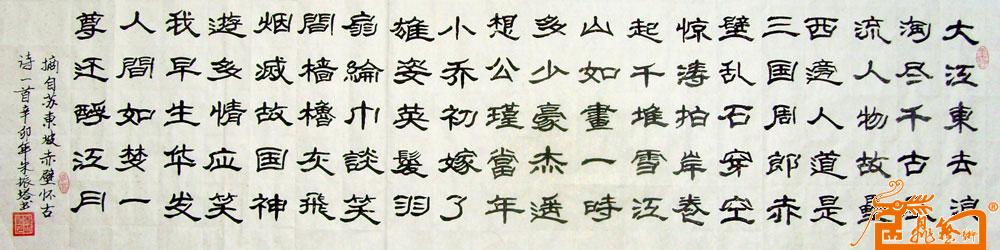 大江東去浪
淘尽千古
流人物故壘
西邊人道是
三国周郎赤
壁乱石穿空
惊濤拍岸卷
起千堆雪江
山如畫一時
多少豪杰遥
想公瑾當年
小乔初嫁了
雄姿英髮羽
扇綸巾談笑
間樯櫓灰飛
烟滅故国神
遊多情应笑
我早生华发
人間如梦一
尊还酹江月
摘自苏東坡赤壁怀古
诗一首辛卯年朱振塔书